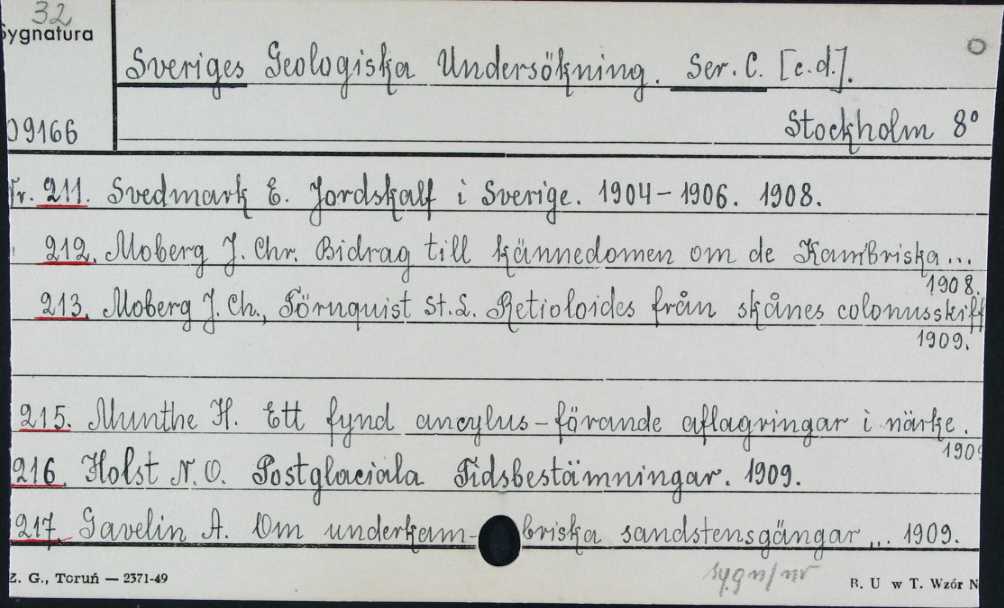 32
Sygnatura
Sveriges Geologiska Undersökning. Ser. C. [c.d.].
09166
Stockholm 8°
Nr. 211. Svedmark E. Jordskalf i Sverige. 1904-1906. 1908.
212. Moberg J. Chr. Bidrag till kännedomen om de Kambriska...
1908.
213. Moberg J. Ch., Törnquist St. L. Retioloides från skånes colonusskiff
1909.
215. Munthe H. Ett fynd ancylus-förande aflagringar i närke.
1909
216. Holst N. O. Postglaciala Tidsbestämningar. 1909.
217. Gavelin A. Om underkam-briska sandstensgängar... 1909.
sygn/nr
Z. G., Toruń — 2371-49
B. U w T. Wzór N